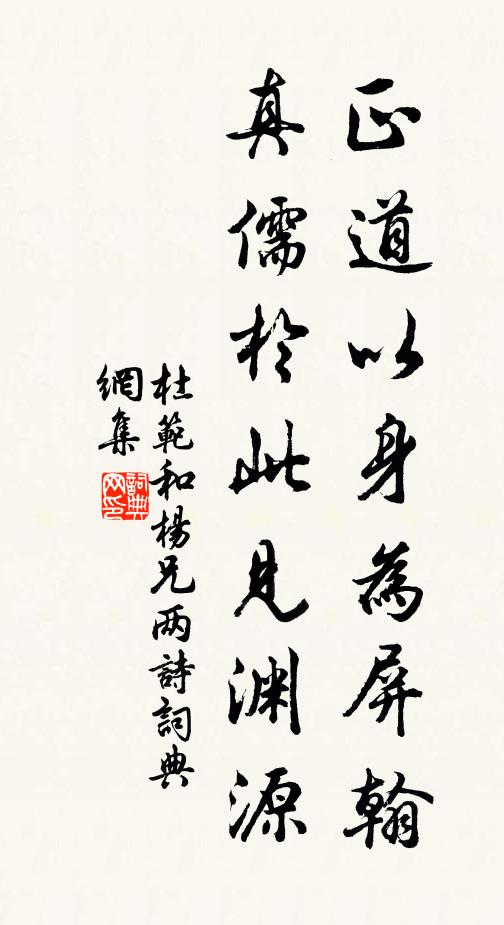 正道以身為屏翰
真儒於此見渊源
杜範和楊兄两詩詞典
網集
詞典网印